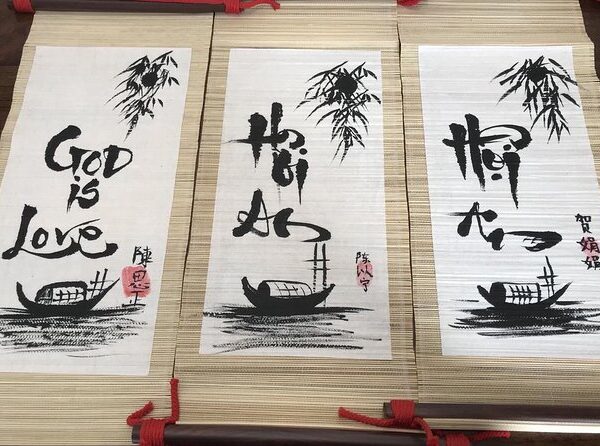 GOD
is
Love
Hội
An
陈以宁
Hội
An
賀娟娟